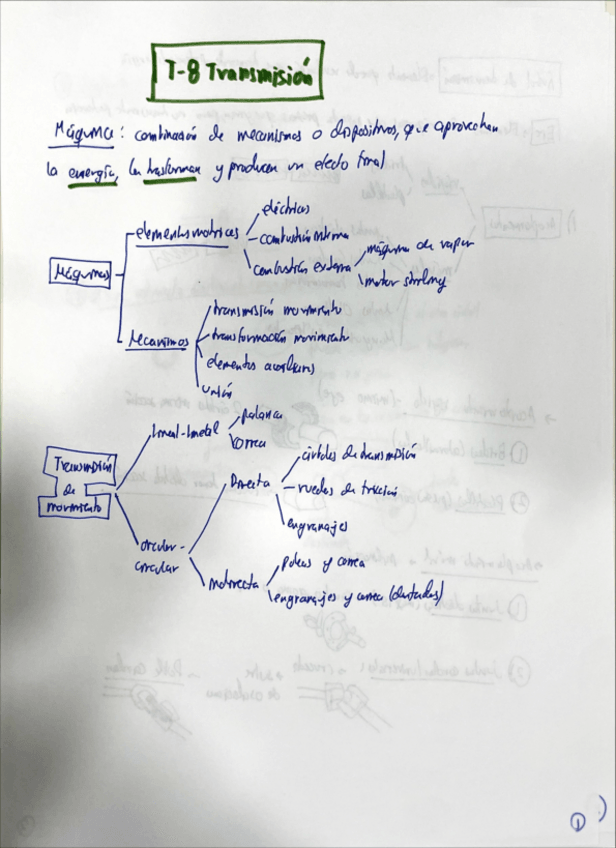 T-8 Transmisión
Máquina: combinación de mecanismos o dispositivos, que aprovechan
la energía, la trasforman y producen un efecto final
Máquinas
elementos motrices
eléctricos
combustión interna
combustión externa
máquina de vapor
motor
Mecanismos
transmisión movimiento
transformación movimiento
elementos auxiliares
unión
Transmisión
de
movimiento
lineal-lineal
palanca
correa
circular-
circular
Directa
árboles de transmisión
ruedas de fricción
engranajes
Indirecta
poleas y correa
engranajes y correa (dentadas)
1